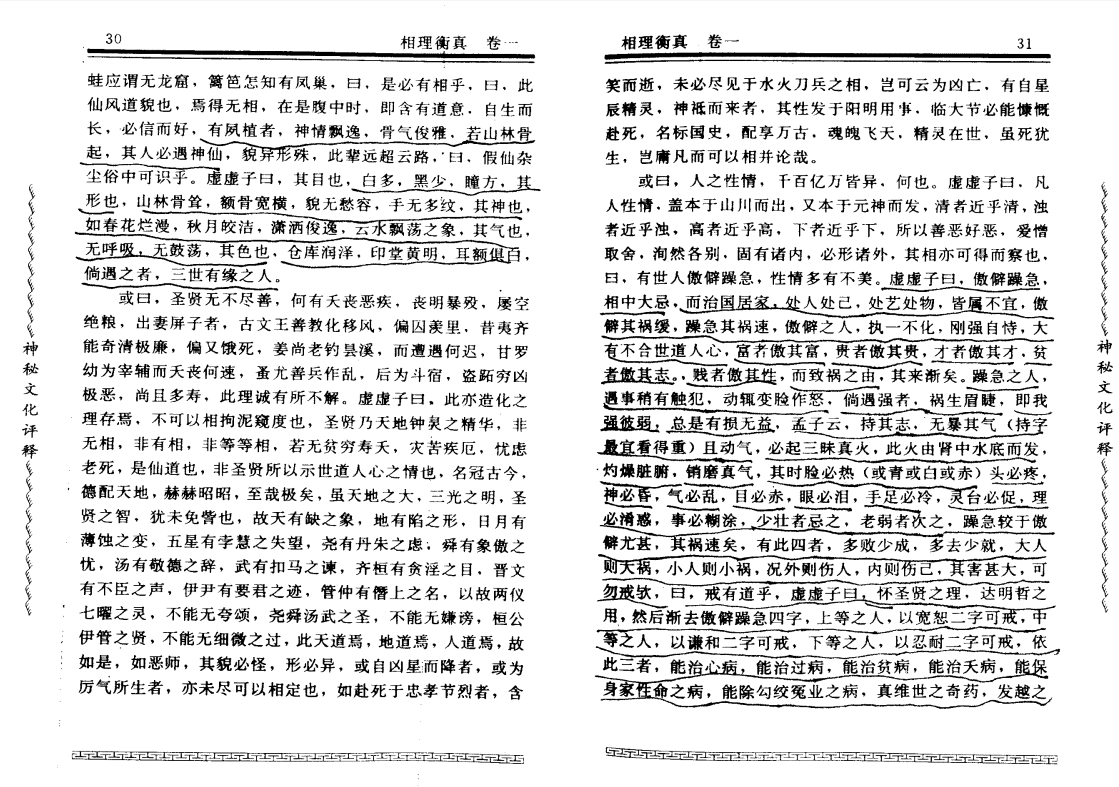 30 相理衡真 卷一
蛙应谓无龙窟，篱笆怎知有凤巢，曰，是必有相乎，曰，此
仙风道貌也，焉得无相，在是腹中时，即含有道意．自生而
长，必信而好，有夙植者，神情飘逸，骨气俊雅，若山林骨
起，其人必遇神仙，貌异形殊，此辈远超云路，曰，假仙杂
尘俗中可识乎。虚虚子曰，其目也，白多，黑少，瞳方，其
形也，山林骨耸，额骨宽横，貌无愁容，手无多纹，其神也，
如春花烂漫，秋月皎洁，潇洒俊逸，云水飘荡之象，其气也，
无呼吸，无鼓荡，其色也，仓库润泽，印堂黄明，耳额俱白，
倘遇之者，三世有缘之人。
或曰，圣贤无不尽善，何有夭丧恶疾，丧明暴殁，屡空
绝粮，出妻屏子者，古文王善教化移风，偏囚羑里，昔夷齐
能奇清极廉，偏又饿死，姜尚老钓磻溪，而遭遇何迟，甘罗
幼为宰辅而夭丧何速，蚩尤善兵作乱，后为斗宿，盗跖穷凶
极恶，尚且多寿，此理诚有所不解。虚虚子曰，此亦造化之
理存焉，不可以相拘泥窥度也，圣贤乃天地钟灵之精华，非
无相，非有相，非等等相，若无贫穷寿夭，灾苦疾厄，忧虑
老死，是仙道也，非圣贤所以示世道人心之情也，名冠古今，
德配天地，赫赫昭昭，至哉极矣，虽天地之大，三光之明，圣
贤之智，犹未免訾也，故天有缺之象，地有陷之形，日月有
薄蚀之变，五星有孛慧之失望，尧有丹朱之虑，舜有象傲之
忧，汤有敬德之辞，武有扣马之谏，齐桓有贪淫之目，晋文
有不臣之声，伊尹有要君之迹，管仲有僭上之名，以故两仪
七曜之灵，不能无夸颂，尧舜汤武之圣，不能无嫌谤，桓公
伊管之贤，不能无细微之过，此天道焉，地道焉，人道焉，故
如是，如恶师，其貌必怪，形必异，或自凶星而降者，或为
厉气所生者，亦未尽可以相定也，如赴死于忠孝节烈者，含
神秘文化评释
相理衡真 卷一 31
笑而逝，未必尽见于水火刀兵之相，岂可云为凶亡，有自星
辰精灵，神祗而来者，其性发于阳明用事，临大节必能慷慨
赴死，名标国史，配享万古，魂魄飞天，精灵在世，虽死犹
生，岂庸凡而可以相并论哉。
或曰，人之性情，千百亿万皆异，何也。虚虚子曰，凡
人性情，盖本于山川而出，又本于元神而发，清者近乎清，浊
者近乎浊，高者近乎高，下者近乎下，所以善恶好恶，爱憎
取舍，洵然各别，固有诸内，必形诸外，其相亦可得而察也，
曰，有世人傲僻躁急，性情多有不美。虚虚子曰，傲僻躁急，
相中大忌，而治国居家，处人处己，处艺处物，皆属不宜，傲
僻其祸缓，躁急其祸速，傲僻之人，执一不化，刚强自恃，大
有不合世道人心，富者傲其富，贵者傲其贵，才者傲其才，贫
者傲其志。，贱者傲其性，而致祸之由，其来渐矣。躁急之人，
遇事稍有触犯，动辄变脸作怒，倘遇强者，祸生眉睫，即我
强彼弱，总是有损无益，孟子云，持其志，无暴其气（持字
最宜看得重）且动气，必起三昧真火，此火由肾中水底而发，
灼燥脏腑，销磨真气，其时脸必热（或青或白或赤）头必疼，
神必昏，气必乱，目必赤，眼必泪，手足必冷，灵台必促，理
必淆惑，事必糊涂，少壮者忌之，老弱者次之，躁急较于傲
僻尤甚，其祸速矣，有此四者，多败少成，多去少就，大人
则大祸，小人则小祸，况外则伤人，内则伤己，其害甚大，可
勿戒欤，曰，戒有道乎，虚虚子曰，怀圣贤之理，达明哲之
用，然后渐去傲僻躁急四字，上等之人，以宽恕二字可戒，中
等之人，以谦和二字可戒，下等之人，以忍耐二字可戒，依
此三者，能治心病，能治过病，能治贫病，能治夭病，能保
身家性命之病，能除勾绞冤业之病，真维世之奇药，发越之
神秘文化评释